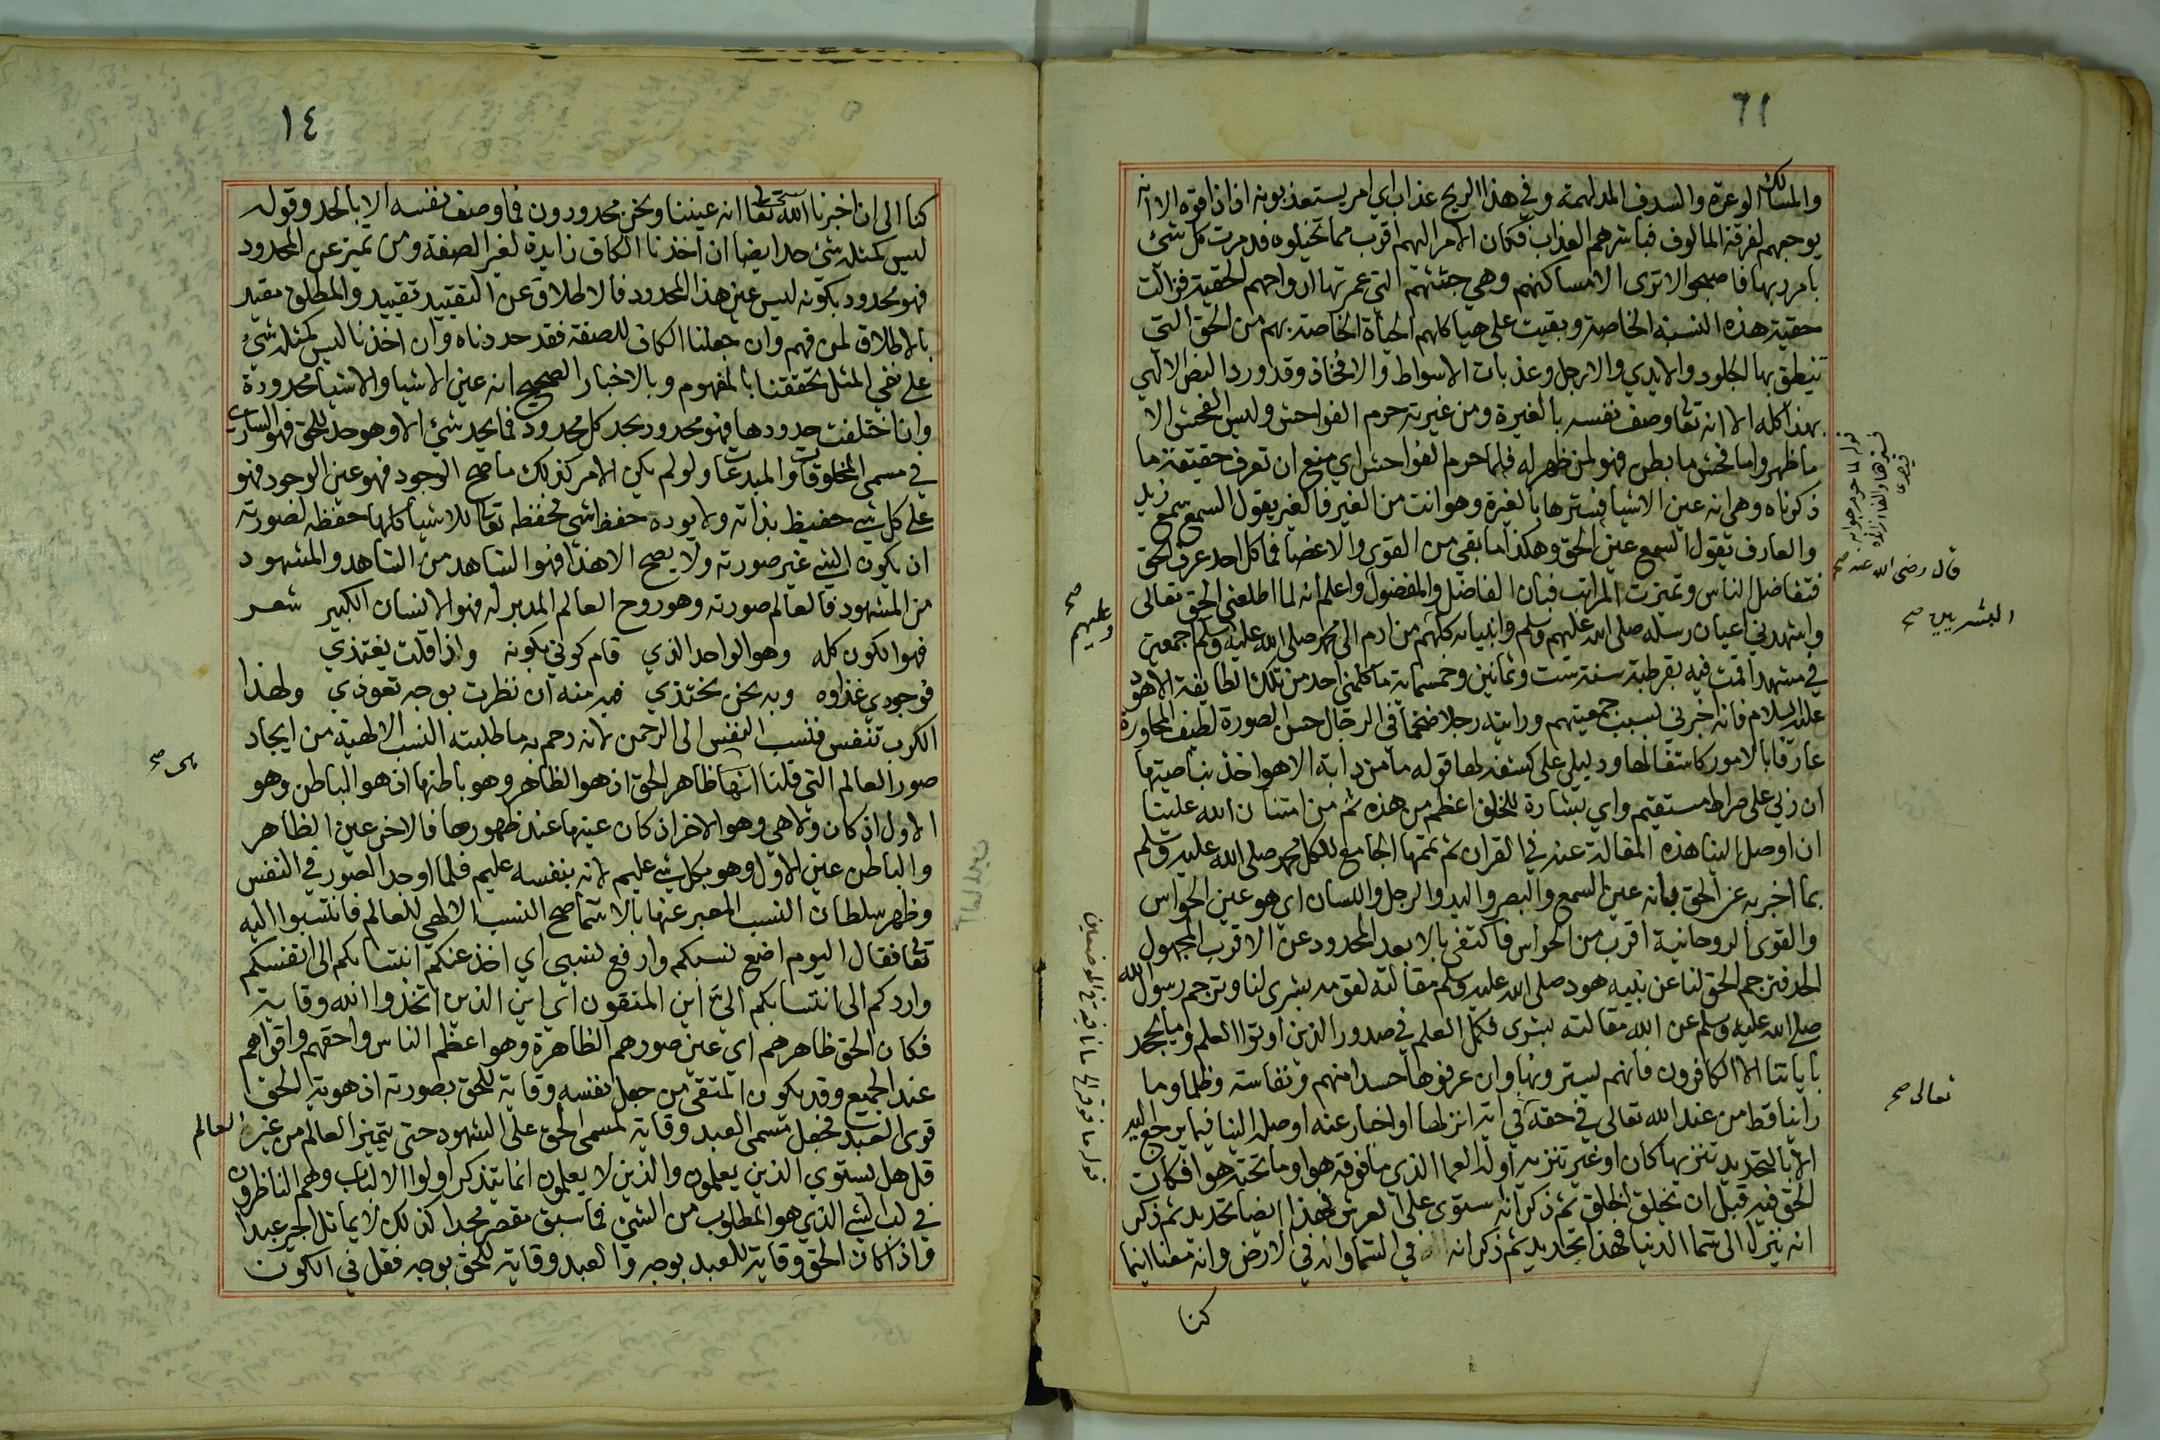 ٦١
والمسالك الوعرة والسدف المدلهمة وفي هذا الريح عذاب اي امر يستعذبونه اذا ذاقوه الا انه
يوجعهم لفرقة المالوف فباشرهم العذاب فكان الامر اليهم اقرب مما تخيلوه فدمرت كل شئ
بامر ربها فاصبحوا لا ترى الا مساكنهم وهي جثثهم التي عمرتها ارواحهم الحقية فزالت
حقية هذه النسبة الخاصة وبقيت على هياكلهم الحياة الخاصة بهم من الحق التي
تنطق بها الجلود والايدي والارجل وعذبات الاسواط والافخاذ وقد ورد النص الالهي
بهذا كله الا انه تعا وصف نفسه بالغيرة ومن غيرته حرم الفواحش وليس الفحش الا
ما ظهر واما فحش ما بطن فهو لمن ظهر له فلما حرم الفواحش اي منع ان تعرف حقيقة ما
ذكرناه وهي انه عين الاشيا فسترها بالغيرة وهو انت من الغير فالغير يقول السمع سمع زيد
والعارف يقول السمع عين الحق وهكذا ما بقي من القوى والاعضا فما كل احد عرف الحق
فتفاضل الناس وتميزت المراتب فبان الفاضل والمفضول واعلم انه لما اطلعني الحق تعالى
واشهدني اعيان رسله صلى الله عليهم وسلم وانبيائه كلهم من ادم الى محمد صلى الله عليه وسلم اجمعين
في مشهد اقمت فيه بقرطبة سنة ست وثمانين وخمسمائة ما كلمني احد من تلك الطايفة الا هود
عليه السلام فانه اخبرني بسبب جمعيتهم ورايته رجلا ضخما في الرجال حسن الصورة لطيف المحاورة
عارفا بالامور كاشفا لها ودليلي على كشفه لها قوله ما من دابة الا هو اخذ بناصيتها
ان ربي على صراط مستقيم واي بشارة للخلق اعظم من هذه ثم من امتنان الله علينا
ان اوصل الينا هذه المقالة عنه في القران ثم تممها الجامع للكل محمد صلى الله عليه وسلم
بما اخبر به عن الحق بانه عين السمع والبصر واليد والرجل واللسان اي هو عين الحواس
والقوى الروحانية اقرب من الحواس فاكتفى بالابعد المحدود عن الاقرب المجهول
الحد فترجم الحق لنا عن نبيه هود صلى الله عليه وسلم مقالته لقومه بشرى لنا وترجم رسول الله
صلى الله عليه وسلم عن الله مقالته بشرى فكمل العلم في صدور الذين اوتوا العلم وما يجحد
باياتنا الا الكافرون فانهم يسترونها وان عرفوها حسدا منهم ونفاسة وظلما وما
راينا قط من عند الله تعالى في حقه في اية انزلها او اخبار عنه اوصله الينا فيما يرجع اليه
الا بالتحديد تنزيها كان او غير تنزيه اوله العما الذي ما فوقه هوا وما تحته هوا فكان
الحق فيه قبل ان يخلق الخلق ثم ذكر انه استوى على العرش فهذا ايضا تحديد ثم ذكر
انه ينزل الى سما الدنيا فهذا تحديد ثم ذكر انه في السما وانه في الارض وانه معنا اينما
كنا
قوله لما حرم جوابه
فسترها والفا زائدة
قيصري
قال رضى الله عنه صح
البشريين صح
تعالى صح
وعليهم صح
١٤
كنا الى ان اخبرنا الله تعا انه عيننا ونحن محدودون فما وصف نفسه الا بالحد وقوله
ليس كمثله شئ حد ايضا ان اخذنا الكاف زايدة لغير الصفة ومن تميز عن المحدود
فهو محدود بكونه ليس عين هذا المحدود فالاطلاق عن التقييد تقييد والمطلق مقيد
بالاطلاق لمن فهم وان جعلنا الكاف للصفة فقد حددناه وان اخذنا ليس كمثله شئ
على نفي المثل تحققنا بالمفهوم وبالاخبار الصحيح انه عين الاشيا والاشيا محدودة
وان اختلفت حدودها فهو محدود بحد كل محدود فما يحد شئ الا وهو حد للحق فهو الساري
في مسمى المخلوقات والمبدعات ولو لم يكن الامر كذلك ما صح الوجود فهو عين الوجود فهو
على كل شئ حفيظ بذاته ولا يوده حفظ شئ فحفظه تعالى للاشيا كلها حفظه لصورته
ان يكون الشئ غير صورته ولا يصح الا هذا فهو الشاهد من الشاهد والمشهود
من المشهود فالعالم صورته وهو روح العالم المدبر له فهو الانسان الكبير شعر
فهو الكون كله وهو الواحد الذي قام كوني بكونه واذا قلت يغتذي
فوجودي غذاوه وبه نحن نحتذي فبه منه ان نظرت بوجه تعوذي ولهذا
الكرب تنفس فنسب النفس الى الرحمن لانه رحم به ما طلبته النسب الالهية من ايجاد
صور العالم التي قلنا انها ظاهر الحق اذ هو الظاهر وهو باطنها اذ هو الباطن وهو
الاول اذ كان ولا هي وهو الاخر اذ كان عينها عند ظهورها فالاخر عين الظاهر
والباطن عين الاول وهو بكل شئ عليم لانه بنفسه عليم فلما اوجد الصور في النفس
وظهر سلطان النسب المعبر عنها بالاسما صح النسب الالهي للعالم فانتسبوا اليه
تعا فقال اليوم اضع نسبكم وارفع نسبي اي اخذ عنكم انتسابكم الى انفسكم
واردكم الى انتسابكم الي اين المتقون اي اين الذين اتخذوا الله وقاية
فكان الحق ظاهرهم اي عين صورهم الظاهرة وهو اعظم الناس واحقهم واقواهم
عند الجميع وقد يكون المتقي من جعل نفسه وقاية للحق بصورته اذ هوية الحق
قوى العبد فجعل مسمى العبد وقاية لمسمى الحق على الشهود حتى يتميز العالم من غير العالم
قل هل يستوي الذين يعلمون والذين لا يعلمون انما يتذكر اولوا الالباب وهم الناظرون
في لب الشئ الذي هو المطلوب من الشئ فما سبق مقصر مجدا كذلك لا يماثل اجير عبدا
واذا كان الحق وقاية للعبد بوجه والعبد وقاية للحق بوجه فقل في الكون